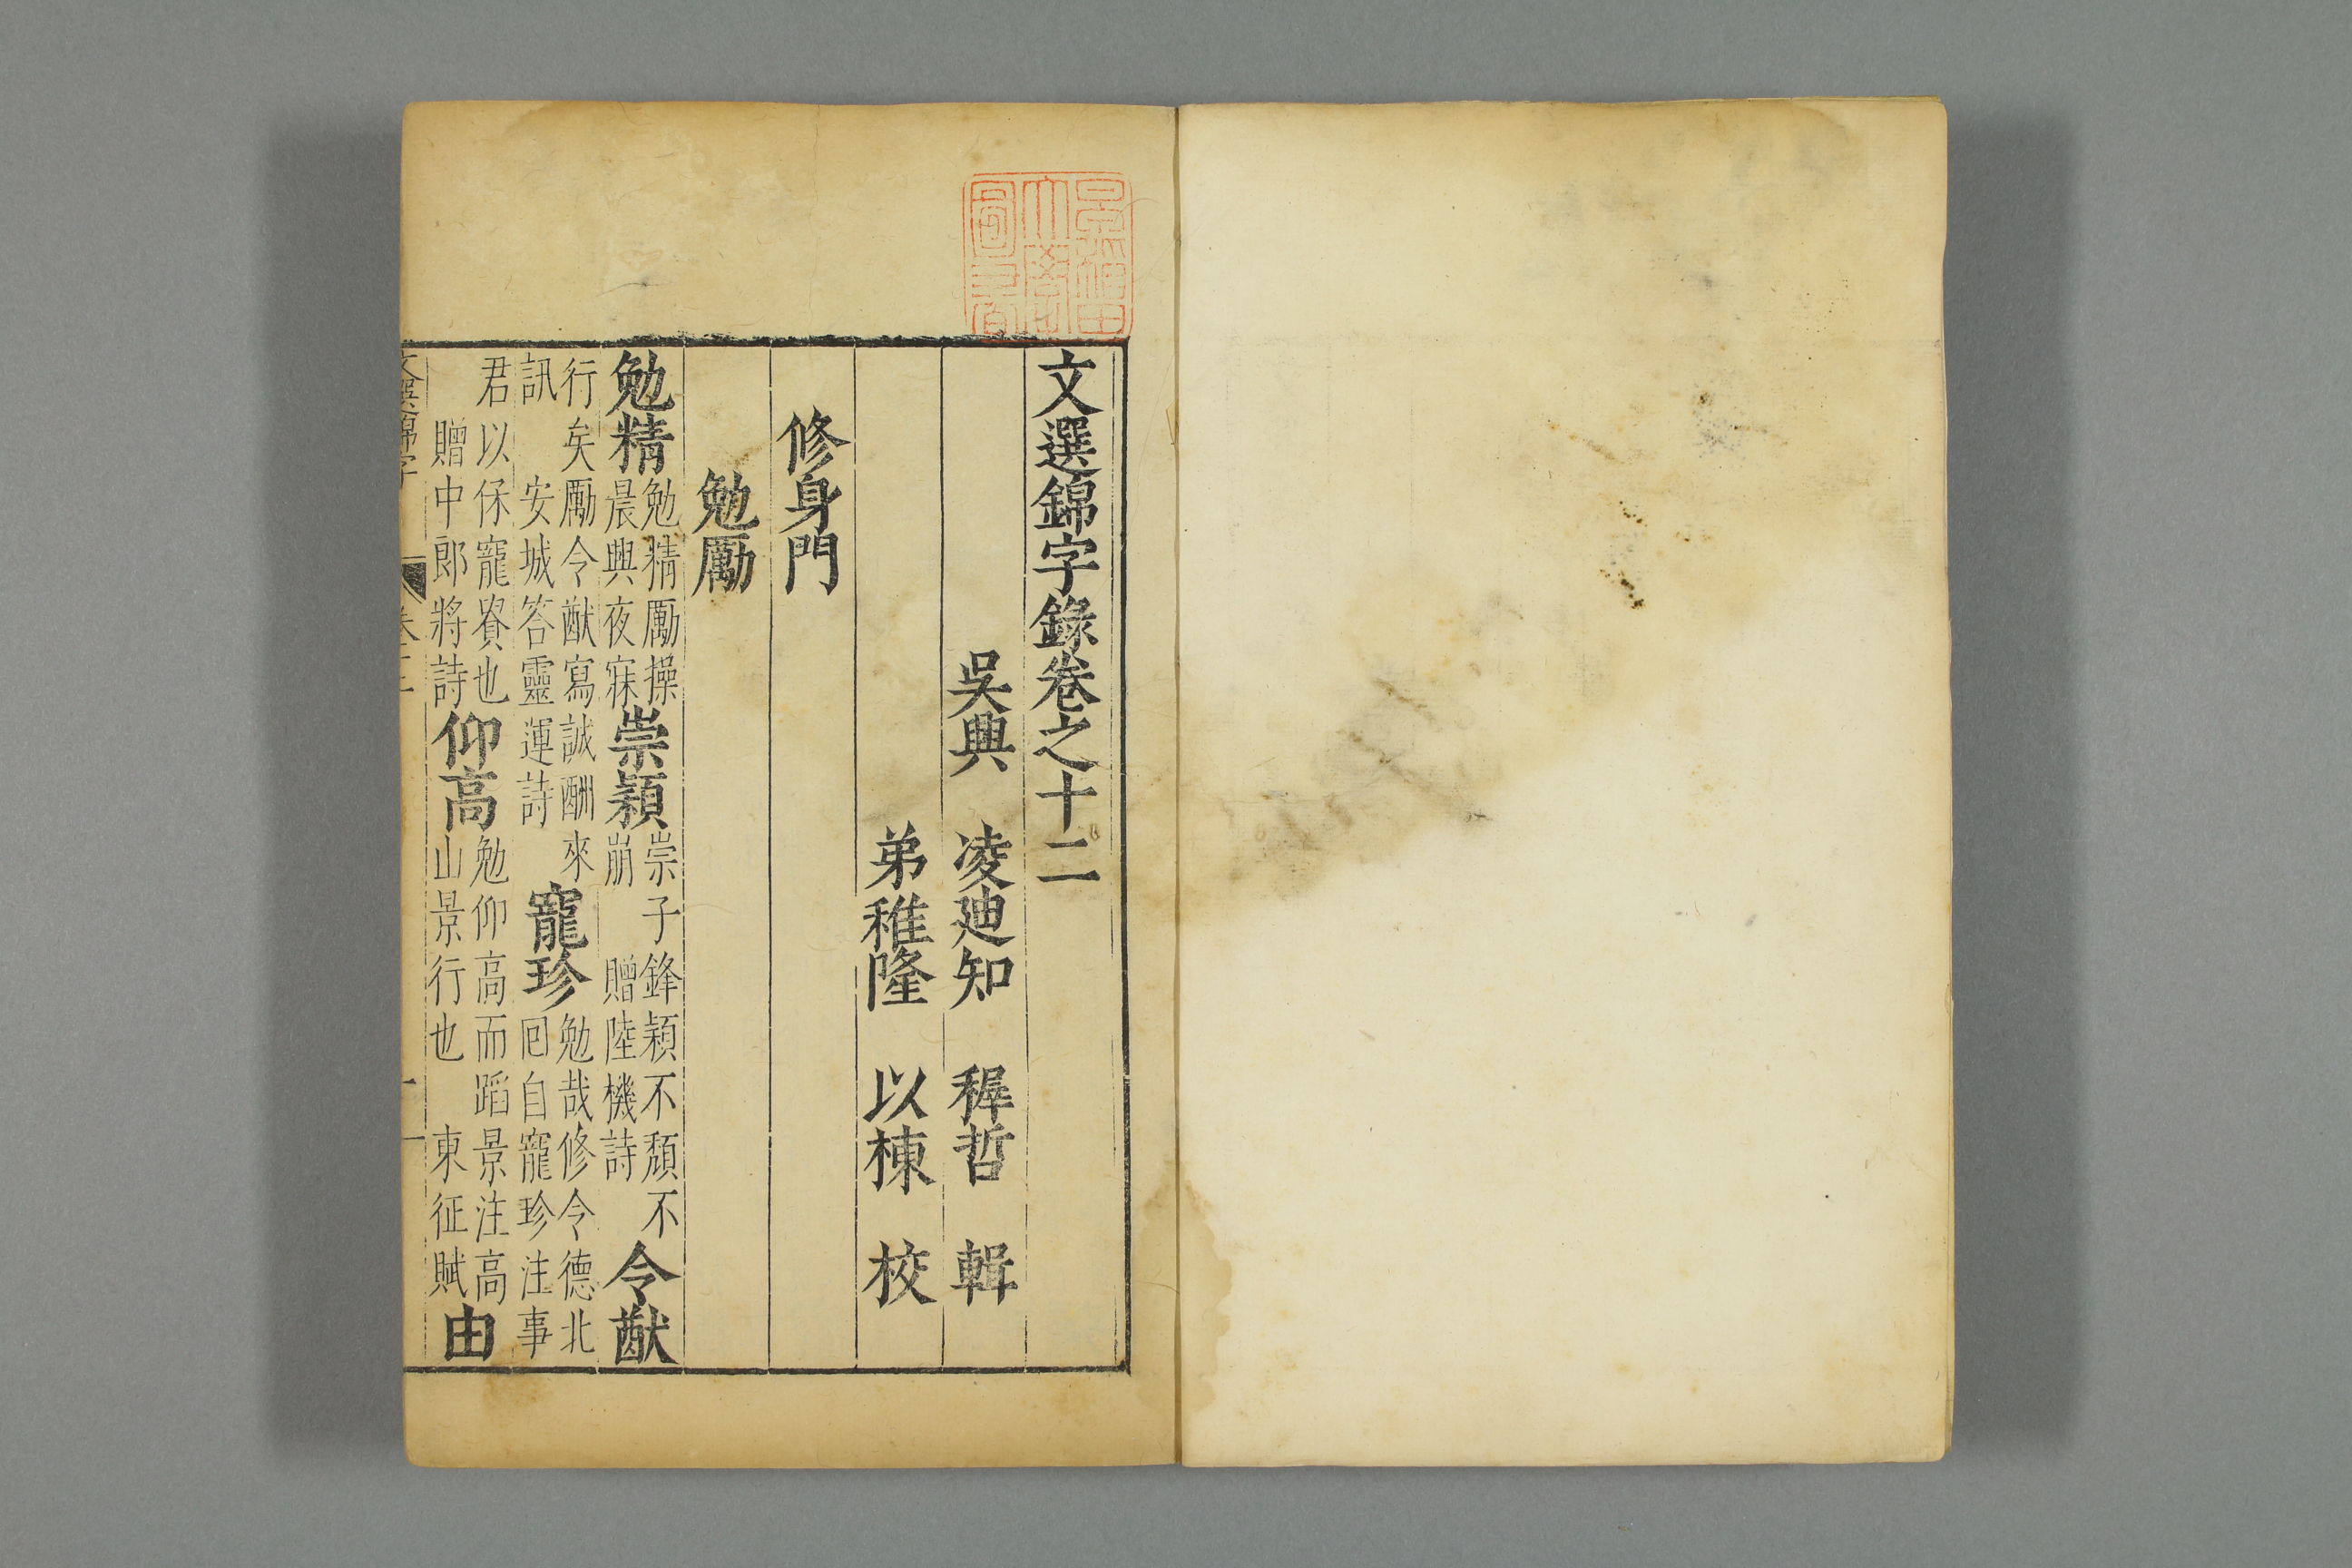 早稻田大學圖書
文選錦字錄卷之十二
吳興 凌迪知 穉哲 輯
弟稚隆 以棟 校
修身門
勉勵
勉精 勉精勵操晨興夜寐 崇穎 崇子鋒穎不頹不崩 贈陸機詩 令猷
行矣勵令猷寫誠酬來訊 安城答靈運詩 寵珍 勉哉修令德北囘自寵珍注事
君以保寵賚也 贈中郎將詩 仰高 勉仰高而蹈景注高山景行也 東征賦 由
文選錦字 卷十二 一